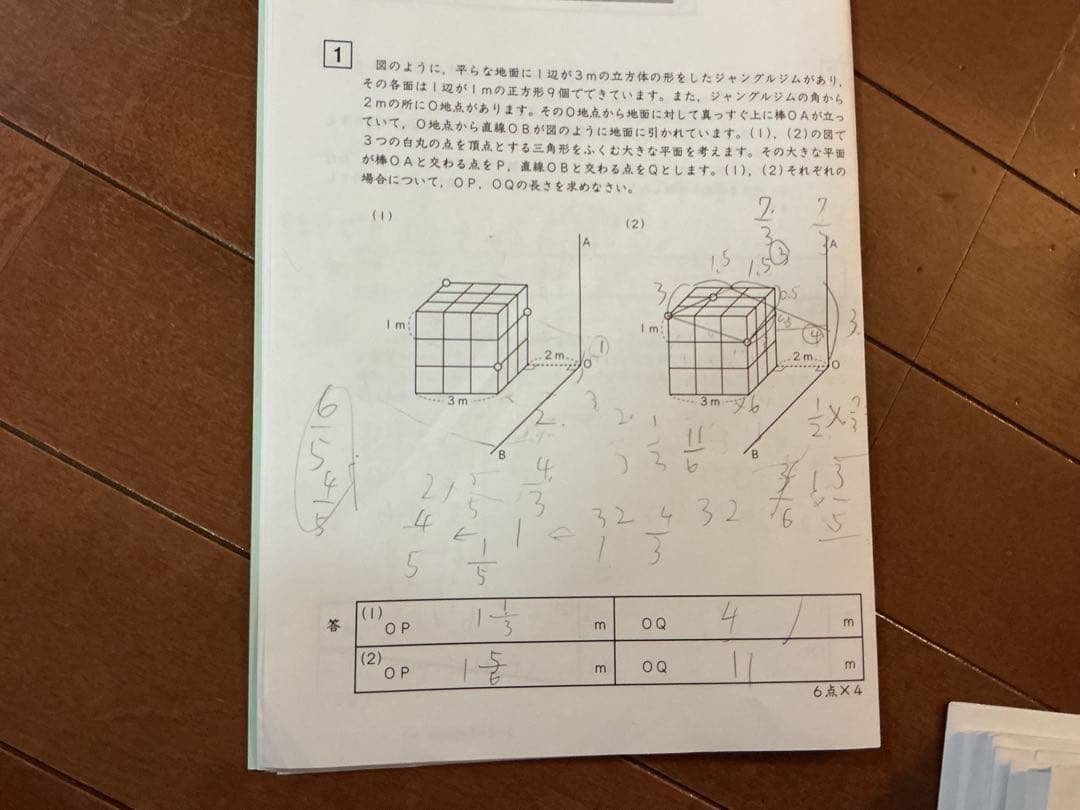 1
図のように，平らな地面に1辺が3mの立方体の形をしたジャングルジムがあり，
その各面は1辺が1mの正方形9個でできています。また，ジャングルジムの角から
2mの所にO地点があります。そのO地点から地面に対して真っすぐ上に棒OAが立っ
ていて，O地点から直線OBが図のように地面に引かれています。(1)，(2)の図で
3つの白丸の点を頂点とする三角形をふくむ大きな平面を考えます。その大きな平面
が棒OAと交わる点をP，直線OBと交わる点をQとします。(1)，(2)それぞれの
場合について，OP，OQの長さを求めなさい。
(1)
A
1m
2m
O
①
3m
B
(2)
7/3
7/3
②
A
1.5
1.5
3
0.5
1m
④
3
2m
O
3m
B
1/3
11/6
4/3
6/5
4/5
4/5
←
1/5
1
←
4/3
3 2
答
(1) OP 1 1/3 m
OQ 4 m
(2) OP 1 5/6 m
OQ 11 m
6点×4